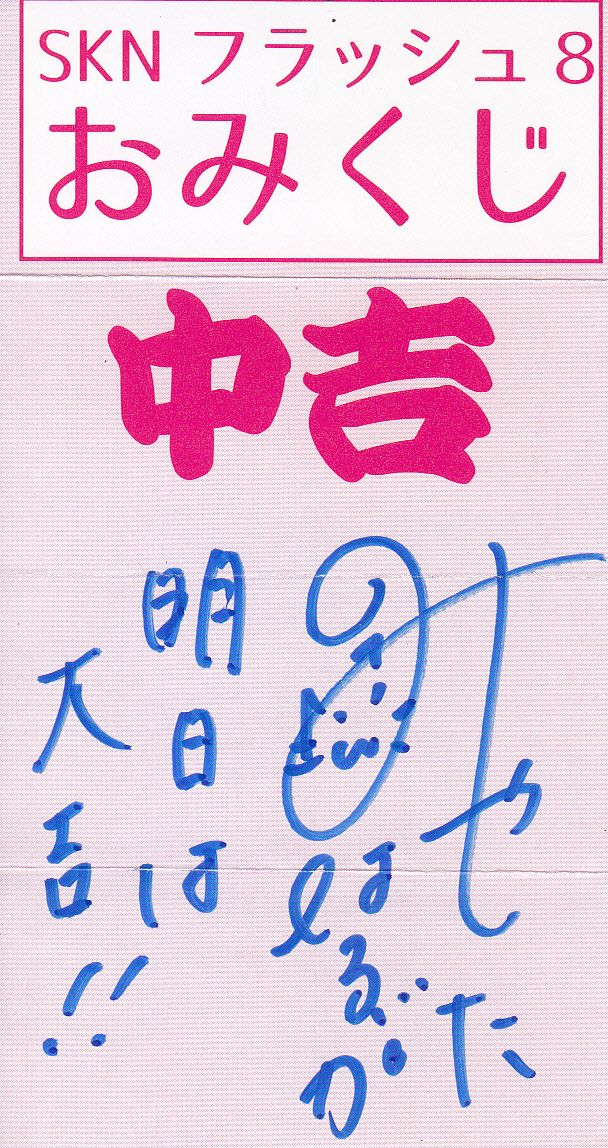 SKN フラッシュ8
おみくじ
中吉
明日は
大吉!!